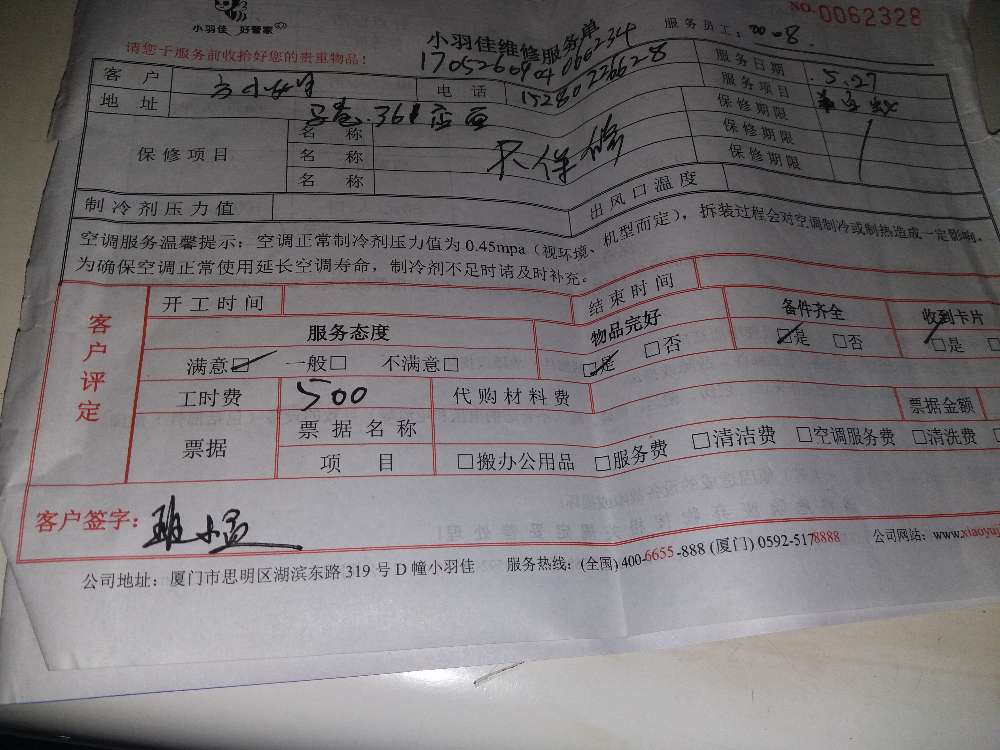 小羽佳 好管家
NO.0062328
小羽佳维修服务单
服务员工:
请您于服务前收拾好您的贵重物品!
170526090406 6234
服务日期 .5.27
客户 方小女士 电话 15280226628 服务项目
地址 361 保修期限
保修项目 名称 不保修 保修期限
名称 保修期限
名称
制冷剂压力值 出风口温度
空调服务温馨提示:空调正常制冷剂压力值为 0.45mpa(视环境、机型而定),拆装过程会对空调制冷或制热造成一定影响,
为确保空调正常使用延长空调寿命,制冷剂不足时请及时补充。
客户评定
开工时间 结束时间
服务态度 物品完好 备件齐全 收到卡片
满意☑ 一般□ 不满意□ ☑是 □否 ☑是 □否 □是 □
工时费 500 代购材料费
票据 票据名称 票据金额
项目 □搬办公用品 □服务费 □清洁费 □空调服务费 □清洗费
客户签字:
公司地址:厦门市思明区湖滨东路 319 号 D 幢小羽佳 服务热线:(全国)400-6655-888 (厦门) 0592-5178888 公司网站:www.xiaoyuj